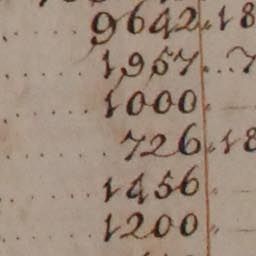 9642. 18
1957. 7
1000.
726. 18
1456
1200.